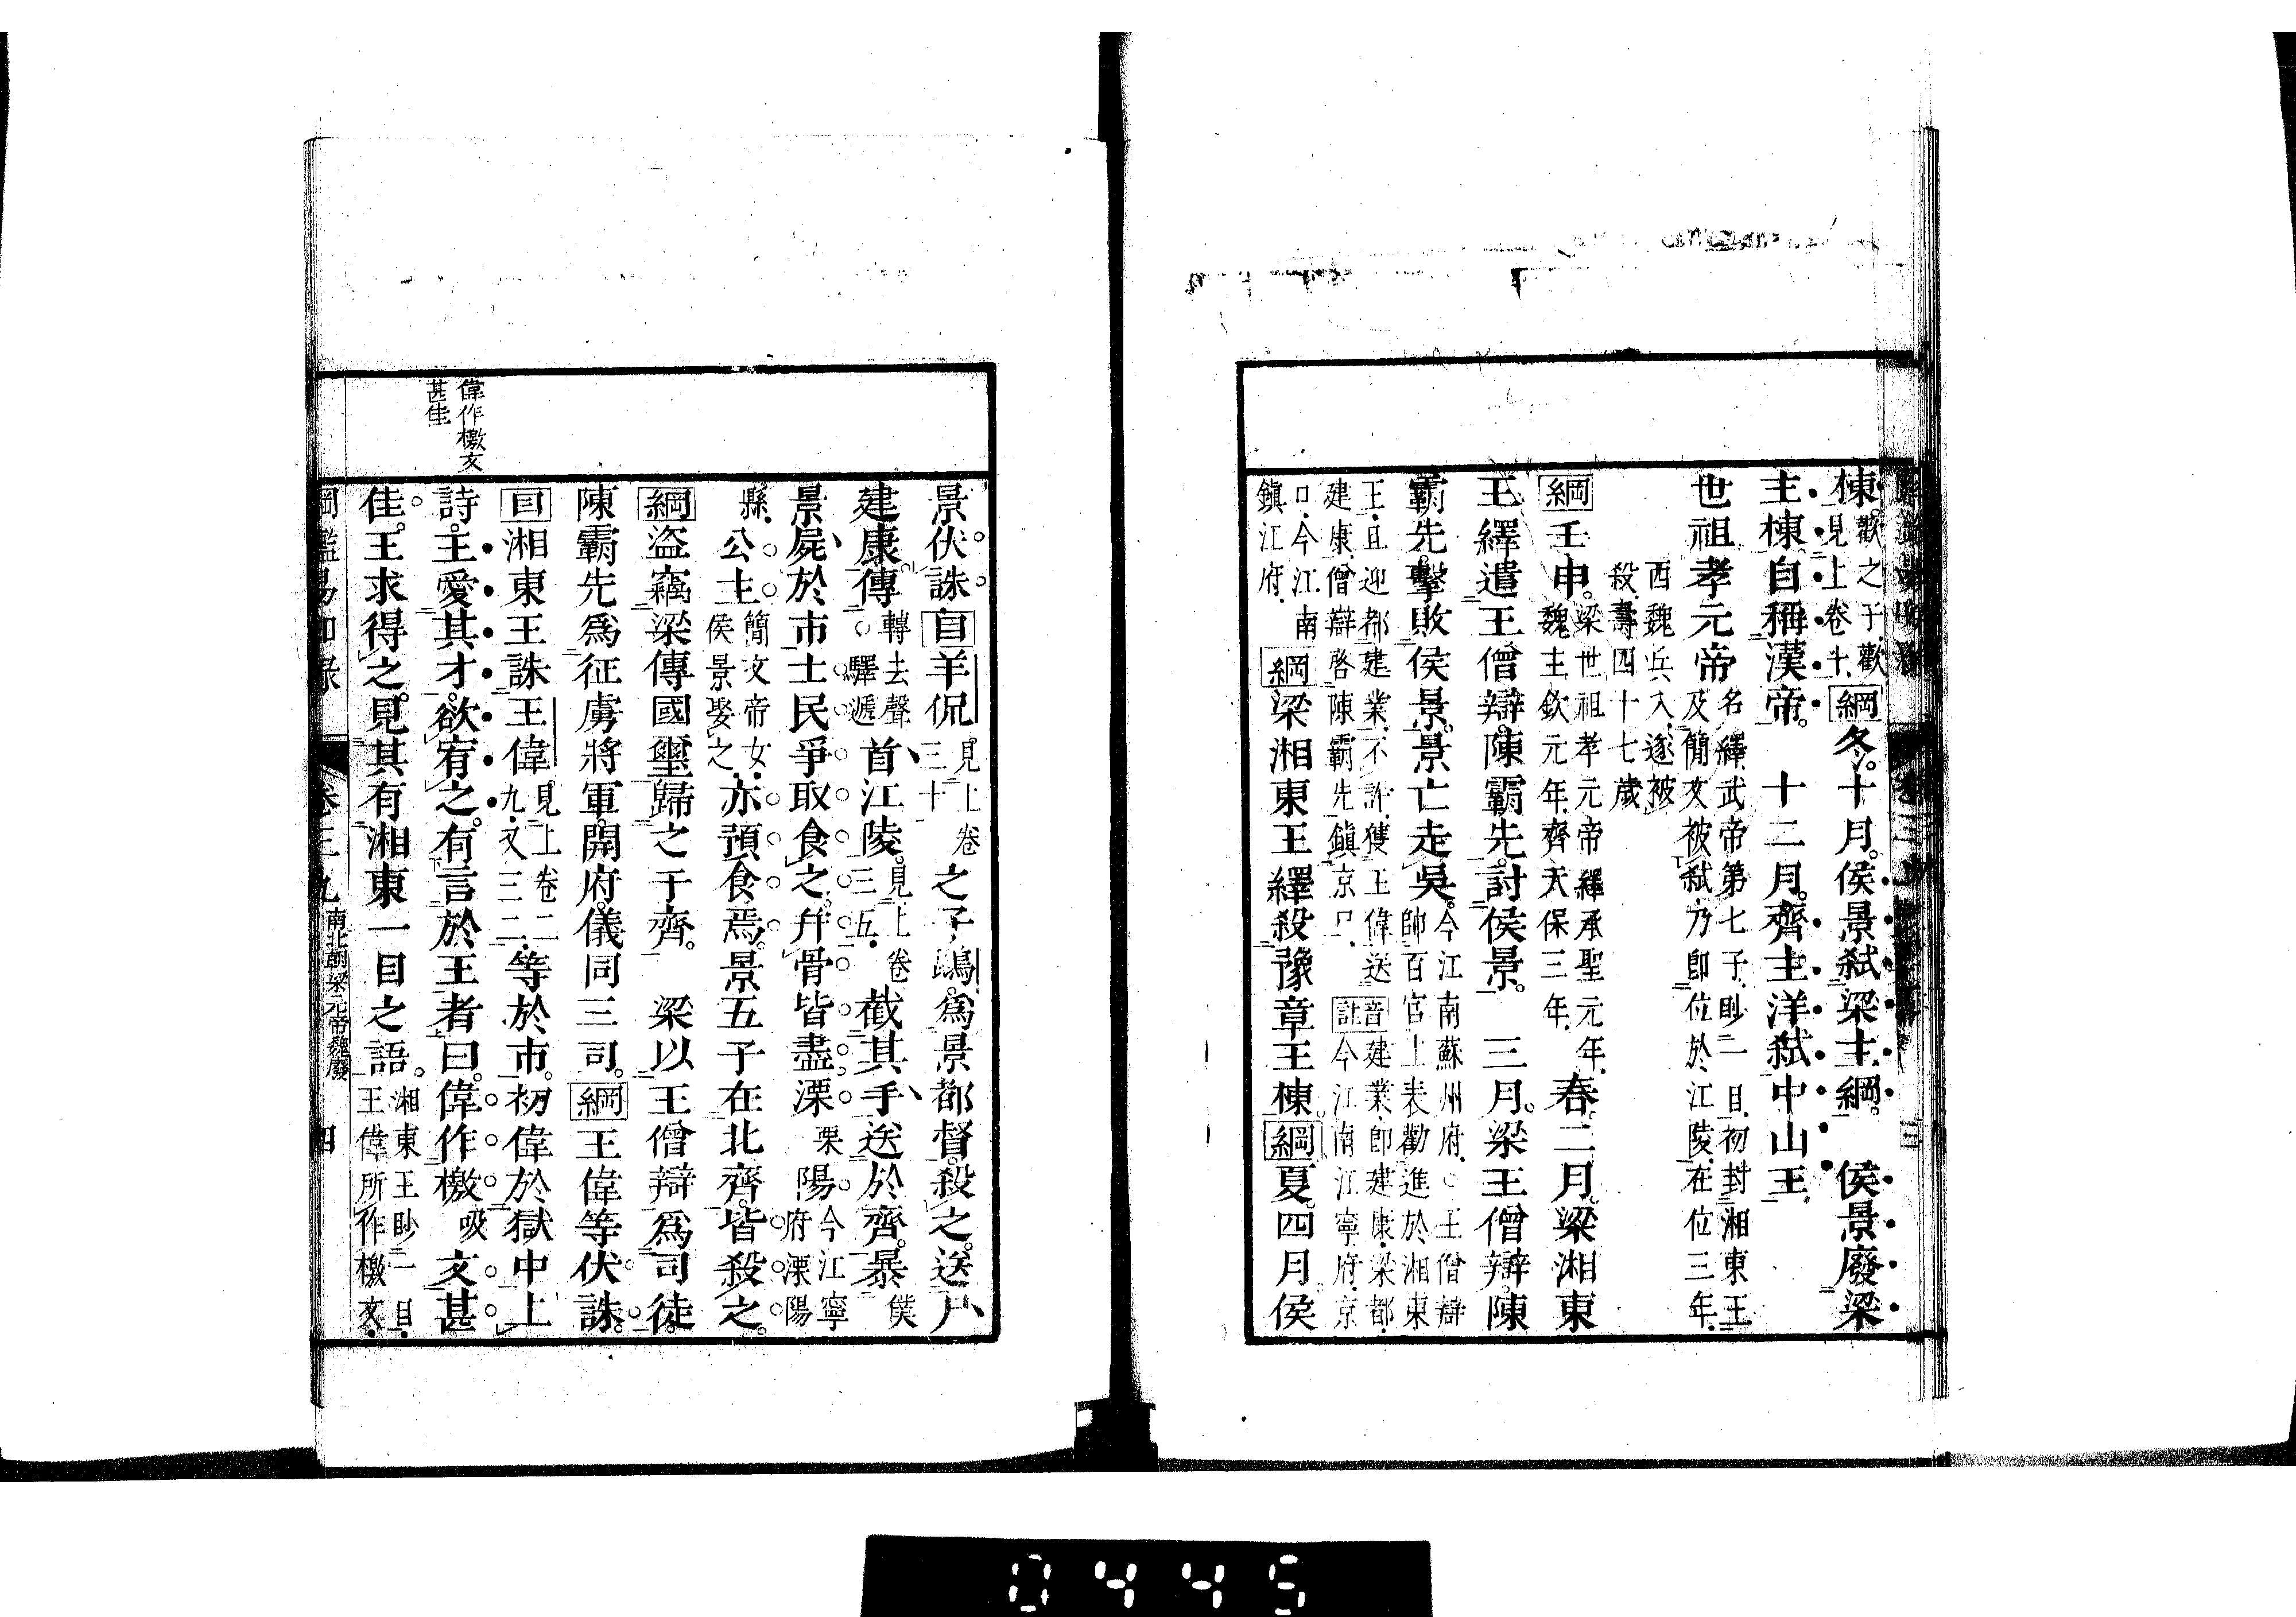 棟。歡之子、歡見上卷十、綱冬。十月。侯景弑梁主綱。　侯景廢梁
主棟。自稱漢帝。　十二月。齊主洋弑中山王
世祖孝元帝名繹、武帝第七子、眇一目、初封湘東王、及簡文被弑、乃卽位於江陵、在位三年、
西魏兵入、遂被殺、壽四十七歲
綱壬申。梁世祖孝元帝繹承聖元年、魏主欽元年、齊天保三年、春。二月。梁湘東
王繹遣王僧辯。陳霸先。討侯景。　三月。梁王僧辯。陳
霸先。擊敗侯景。景亡走吳。今江南蘇州府、○王僧辯帥百官上表勸進於湘東
王、且迎都建業、不許、獲王偉送建康、僧辯啓陳霸先鎮京口、音註今江南江寧府、京
口、今江南鎮江府、綱梁湘東王繹殺豫章王棟。綱夏。四月。侯
景伏誅。目羊侃見上卷三十之子鵾。爲景都督。殺之。送尸
建康。傳轉去聲○驛遞首江陵。見上卷三五、截其手送於齊。暴僕
景屍於市。士民爭取食之。幷骨皆盡。溧栗陽今江寧府溧陽
縣、公主簡文帝女、侯景娶之亦預食焉。景五子在北齊。皆殺之。
綱盜竊梁傳國璽歸之于齊。　梁以王僧辯爲司徒。
陳霸先爲征虜將軍。開府儀同三司。綱王偉等伏誅。
目湘東王誅王偉見上卷二九、又三二、等於市。初偉於獄中上
詩。王愛其才。欲宥之。有言於王者曰。偉作檄吸文甚
佳。王求得之。見其有湘東一目之語。湘東王眇一目、王偉所作檄文、
偉作檄文
甚佳
綱鑑易知錄　卷三九　南北朝梁元帝魏廢　四